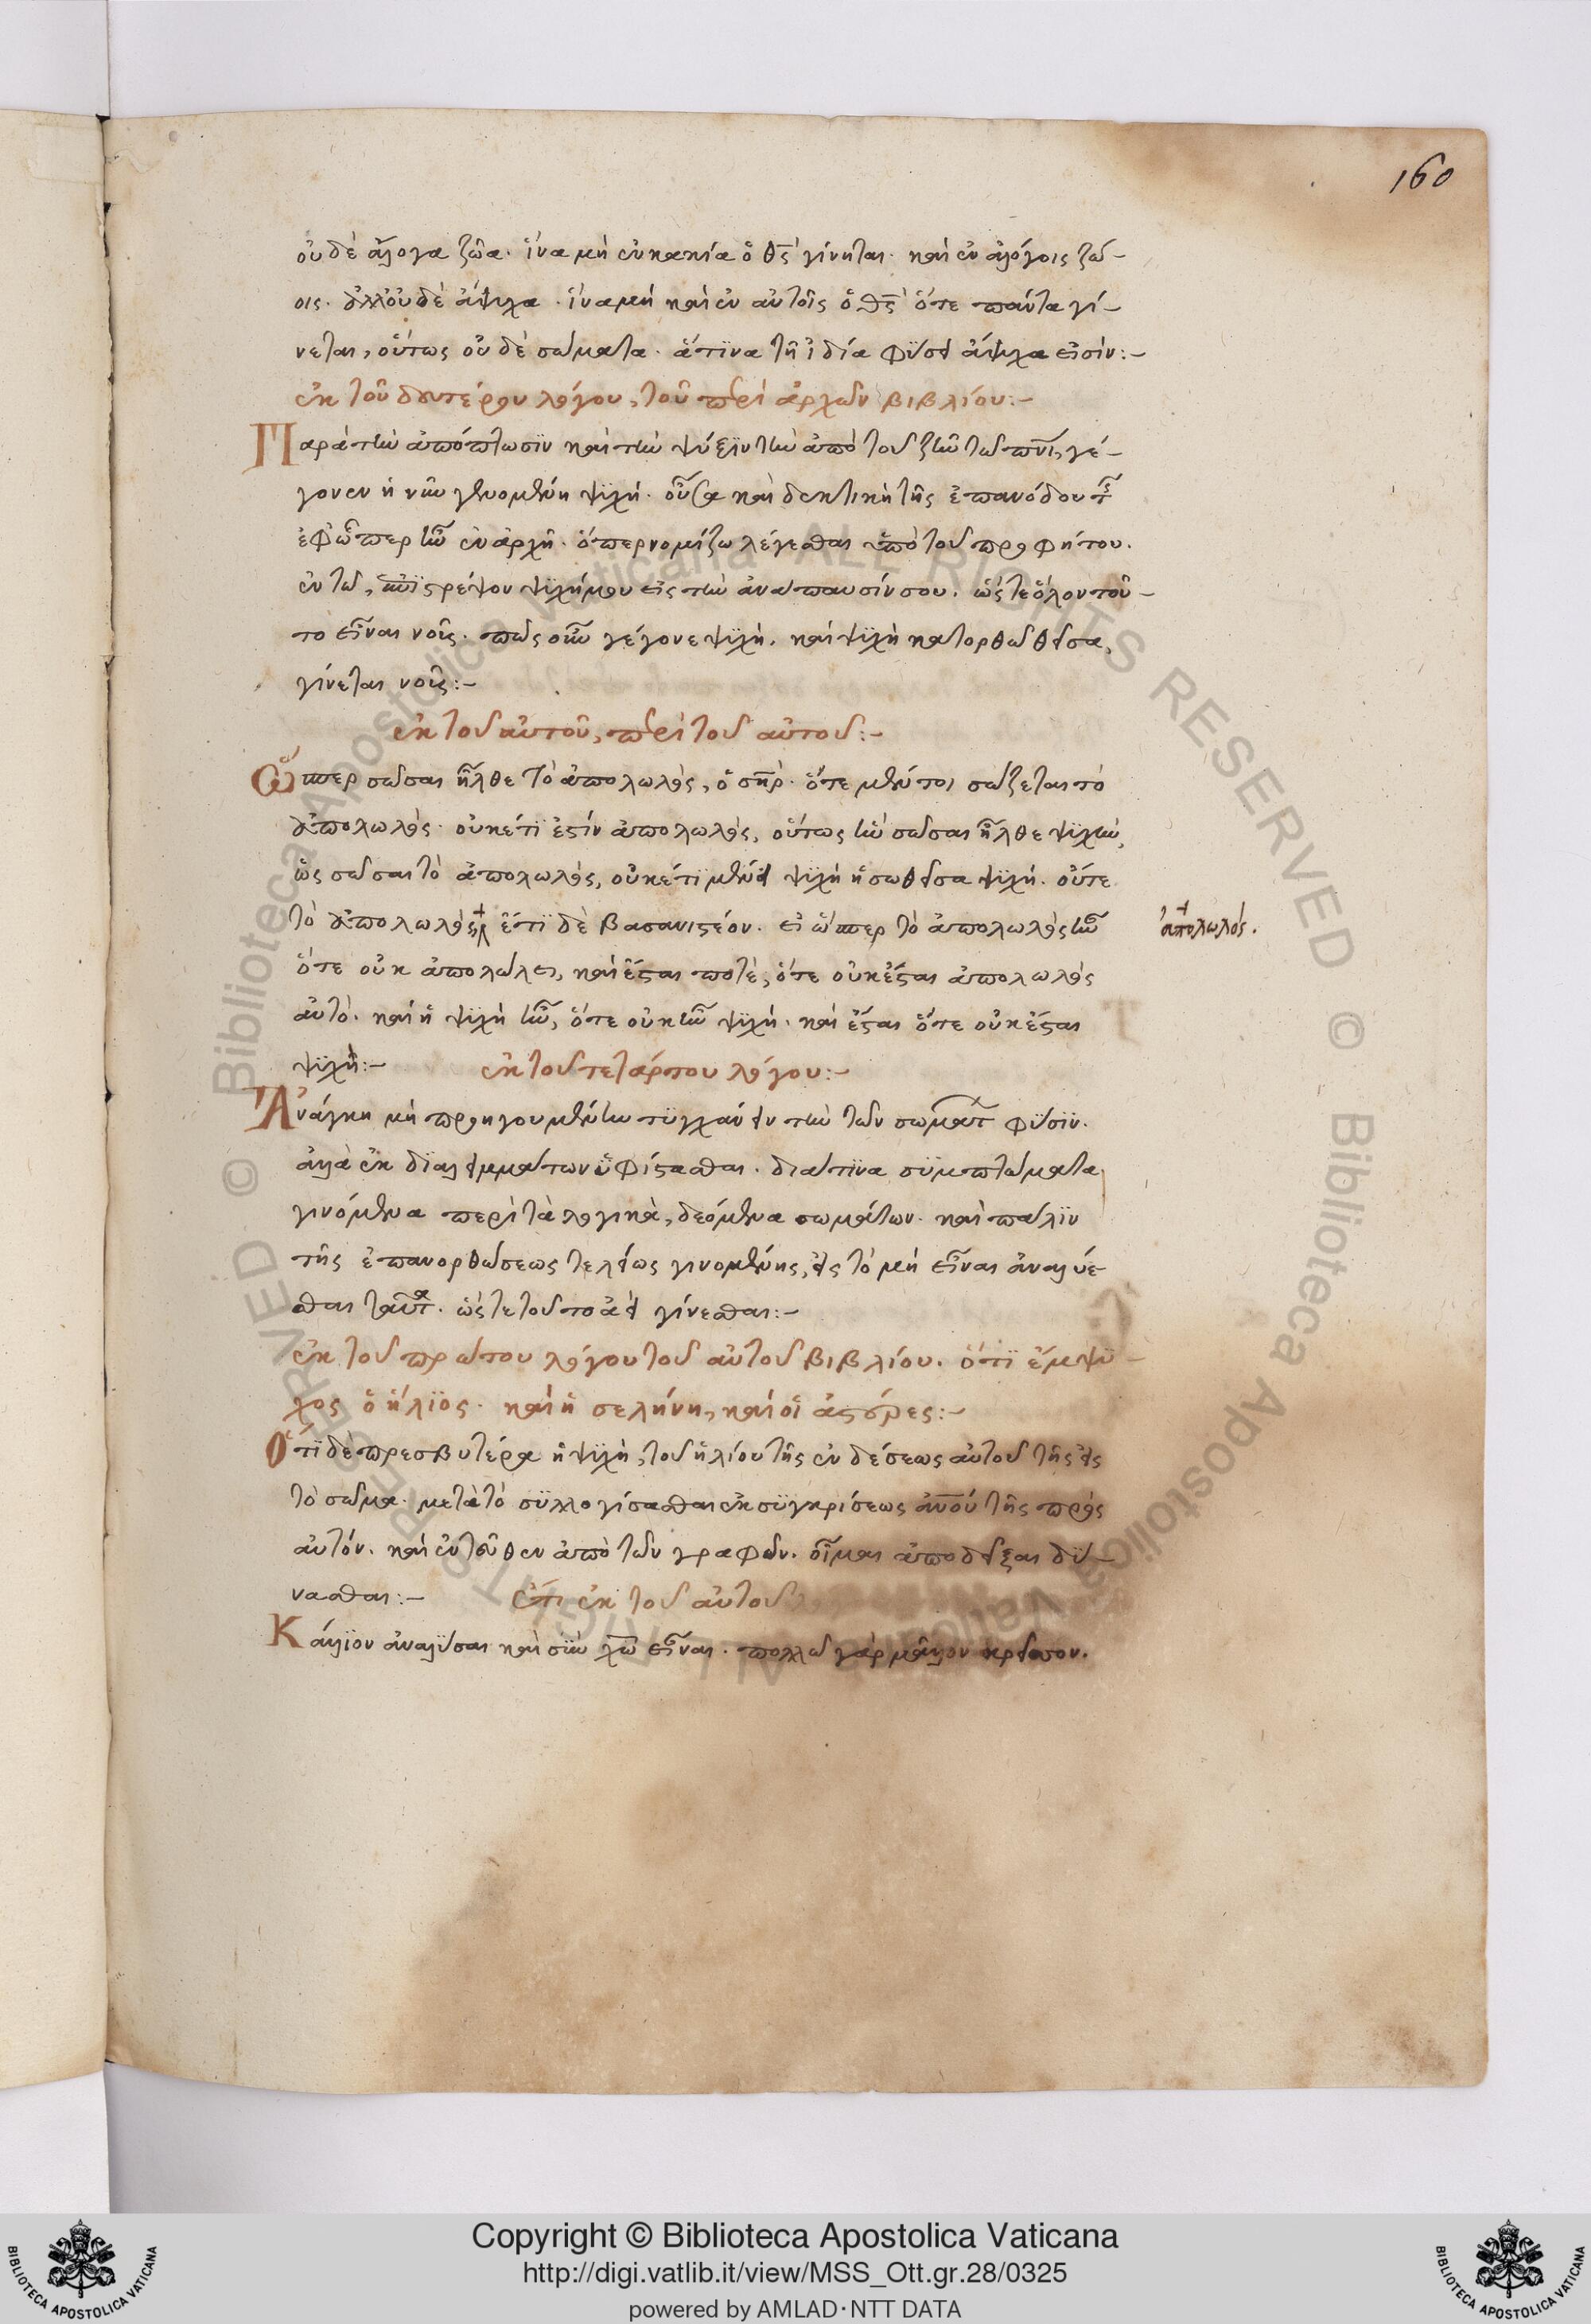 160
οὐδὲ ἄλογα ζῶα· ἵνα μὴ ἐν κακία ὁ θς γίνηται· καὶ ἐν ἀλόγοις ζώ-
οις· ἀλλ' οὐδὲ ἄψυχα· ἵνα μὴ καὶ ἐν αὐτοῖς ὁ θς ὅτε πάντα γί-
νεται, οὕτως οὐδὲ σώματα· ἅτινα τῆ ἰδία φύσει ἄψυχα εἰσίν:-
ἐκ τοῦ δευτέρου λόγου, τοῦ περὶ ἀρχῶν βιβλίου:-
Παρὰ τὴν ἀπόπτωσιν καὶ τὴν ψύξιν τὴν ἀπὸ τοῦ ζῆν τῶ πνι, γέ-
γονεν ἡ νῦν γενομένη ψυχή· οὖσα καὶ δεκτικὴ τῆς ἐπανόδου τῆς
ἐφ' ὧπερ ἦν ἐν ἀρχῆ· ὅπερ νομίζω λέγεσθαι ὑπὸ τοῦ προφήτου.
ἐν τῶ, ἐπίστρεψον ψυχή μου εἰς τὴν ἀνάπαυσίν σου. ὥστε ὅλον τοῦ-
το εἶναι νοῦς· πῶς οὖν γέγονε ψυχή. καὶ ψυχὴ κατορθωθεῖσα,
γίνεται νοῦς:-
ἐκ τοῦ αὐτοῦ, περὶ τοῦ αὐτοῦ:-
Ὥσπερ σῶσαι ἦλθε τὸ ἀπολωλός, ὁ σηρ· ὅτε μέντοι σώζεται τὸ
ἀπολωλός· οὐκέτι ἐστίν ἀπολωλός, οὕτως ἣν σῶσαι ἦλθε ψυχὴν,
ὡς σῶσαι τὸ ἀπολωλός, οὐκέτι μένει ψυχὴ ἡ σωθεῖσα ψυχή. οὔτε
τὸ ἀπολωλός, ἔτι δὲ βασανιστέον. εἰ ὥσπερ τὸ ἀπολωλὸς ἦν
ἀπολωλός.
ὅτε οὐκ ἀπολώλει, καὶ ἔσται ποτὲ, ὅτε οὐκ ἔσται ἀπολωλὸς
αὐτό. καὶ ἡ ψυχὴ ἦν, ὅτε οὐκ ἦν ψυχή. καὶ ἔσται ὅτε οὐκ ἔσται
ψυχή:- ἐκ τοῦ τετάρτου λόγου:-
Ἀνάγκη μὴ προηγουμένην τυγχάνειν τὴν τῶν σωμάτ φύσιν.
ἀλλὰ ἐκ διαλειμμάτων ὑφίστασθαι. διά τινα συμπτώματα
γινόμενα περὶ τὰ λογικὰ, δεόμενα σωμάτων. καὶ πάλιν
τῆς ἐπανορθώσεως τελείως γινομένης, εἰς τὸ μὴ εἶναι ἀναλύε-
σθαι ταῦτα. ὥστε τοῦτο ἀεὶ γίνεσθαι:-
ἐκ τοῦ πρώτου λόγου τοῦ αὐτοῦ βιβλίου. ὅτι ἔμψυ-
χος ὁ ἥλιος· καὶ ἡ σελήνη, καὶ οἱ ἀστέρες:-
Ὅτι δὲ πρεσβυτέρα ἡ ψυχὴ, τοῦ ἡλίου τῆς ἐνδέσεως αὐτοῦ τῆς εἰς
τὸ σῶμα· μετὰ τὸ συλλογίσασθαι ἐκ συγκρίσεως ἀνου τῆς πρὸς
αὐτόν. καὶ ἐντεῦθεν ἀπὸ τῶν γραφῶν. οἶμαι ἀποδεῖξαι δύ-
νασθαι:- ἔτι ἐκ τοῦ αὐτοῦ
Κάλλιον ἀναλῦσαι καὶ σὺν χω εἶναι. πολλῶ γὰρ μᾶλλον κρεῖττον.
Copyright © Biblioteca Apostolica Vaticana
http://digi.vatlib.it/view/MSS_Ott.gr.28/0325
powered by AMLAD·NTT DATA